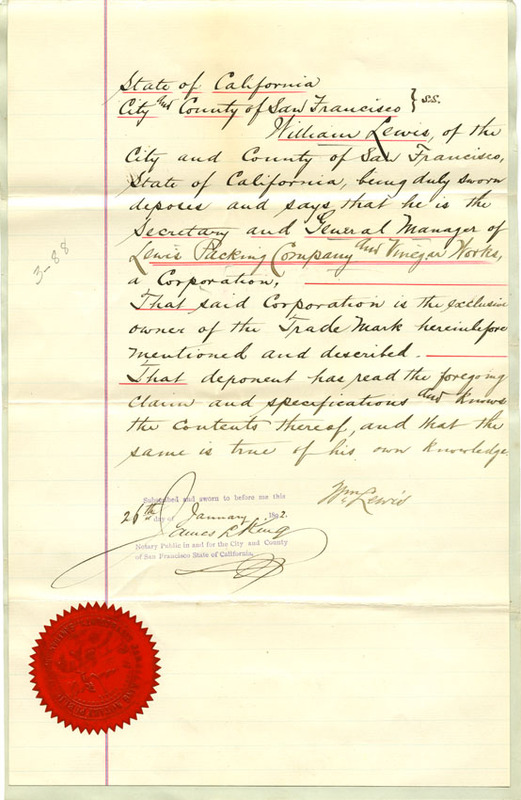 State of California
City and County of San Francisco } S.S.
William Lewis, of the
City and County of San Francisco,
State of California, being duly sworn
deposes and says that he is the
Secretary and General Manager of
Lewis Packing Company and Vinegar Works,
a Corporation,
That said Corporation is the exclusive
owner of the Trade Mark hereinbefore
mentioned and described.
That deponent has read the foregoing
Claim and specifications and knows
the Contents thereof, and that the
same is true of his own knowledge
Wm Lewis
Subscribed and sworn to before me this
26th day of January 1892.
James L. King
Notary Public in and for the City and County
of San Francisco State of California.
3-88